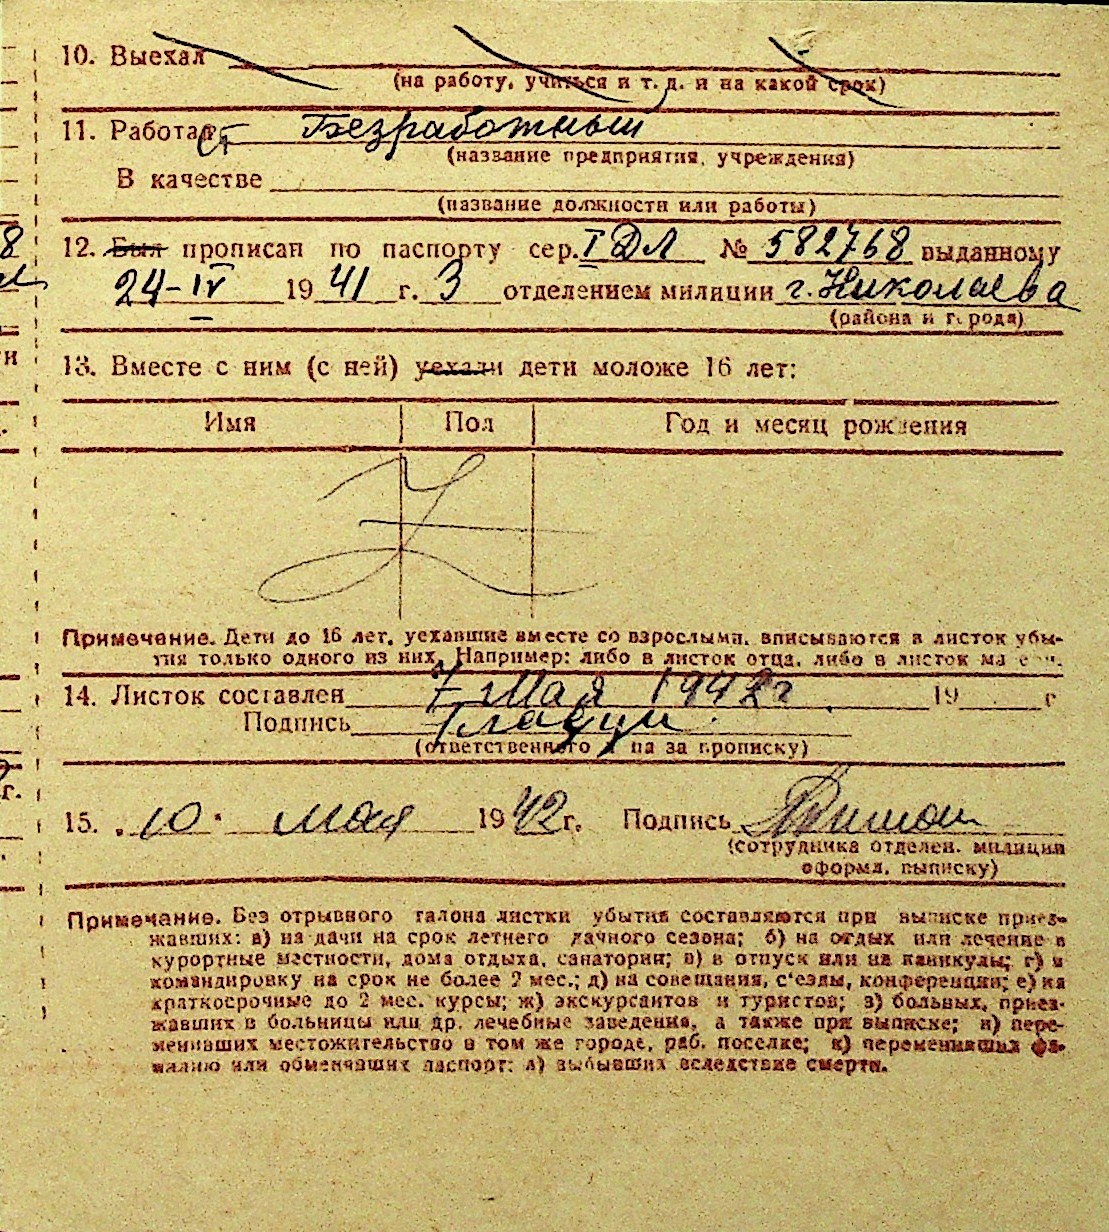 10. Выехал
(на работу, учиться и т. д. и на какой срок)
11. Работает Безработный
(название предприятия, учреждения)
В качестве
(название должности или работы)
12. Был прописан по паспорту сер. I ДЛ № 582768 выданному
24-IV 1941 г. 3 отделением милиции г. Николаева
(района и города)
13. Вместе с ним (с ней) уехали дети моложе 16 лет:
Имя Пол Год и месяц рождения
Примечание. Дети до 16 лет, уехавшие вместе со взрослыми, вписываются в листок убы-
тия только одного из них. Например: либо в листок отца, либо в листок матери.
14. Листок составлен 7 мая 1942 г 19 г
Подпись
(ответственного лица за прописку)
15. 10 мая 1942 г. Подпись
(сотрудника отделен. милиции
оформл. выписку)
Примечание. Без отрывного талона листки убытия составляются при выписке приез-
жавших: а) на дачи на срок летнего дачного сезона; б) на отдых или лечение в
курортные местности, дома отдыха, санатории; в) в отпуск или на каникулы; г) в
командировку на срок не более 2 мес.; д) на совещания, с'езды, конференции; е) на
краткосрочные до 2 мес. курсы; ж) экскурсантов и туристов; з) больных, приез-
жавших в больницы или др. лечебные заведения, а также при выписке; и) пере-
менивших местожительство в том же городе, раб. поселке; к) переменивших фа-
милию или обменявших паспорт; л) выбывших вследствие смерти.